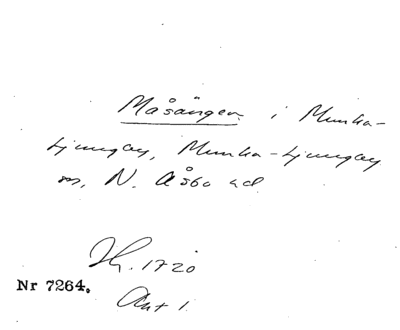 Måsängen i Munka-
Ljungby, Munka-Ljungby
sn, N. Åsbo hd
Jb. 1720
Nr 7264.
Akt 1.